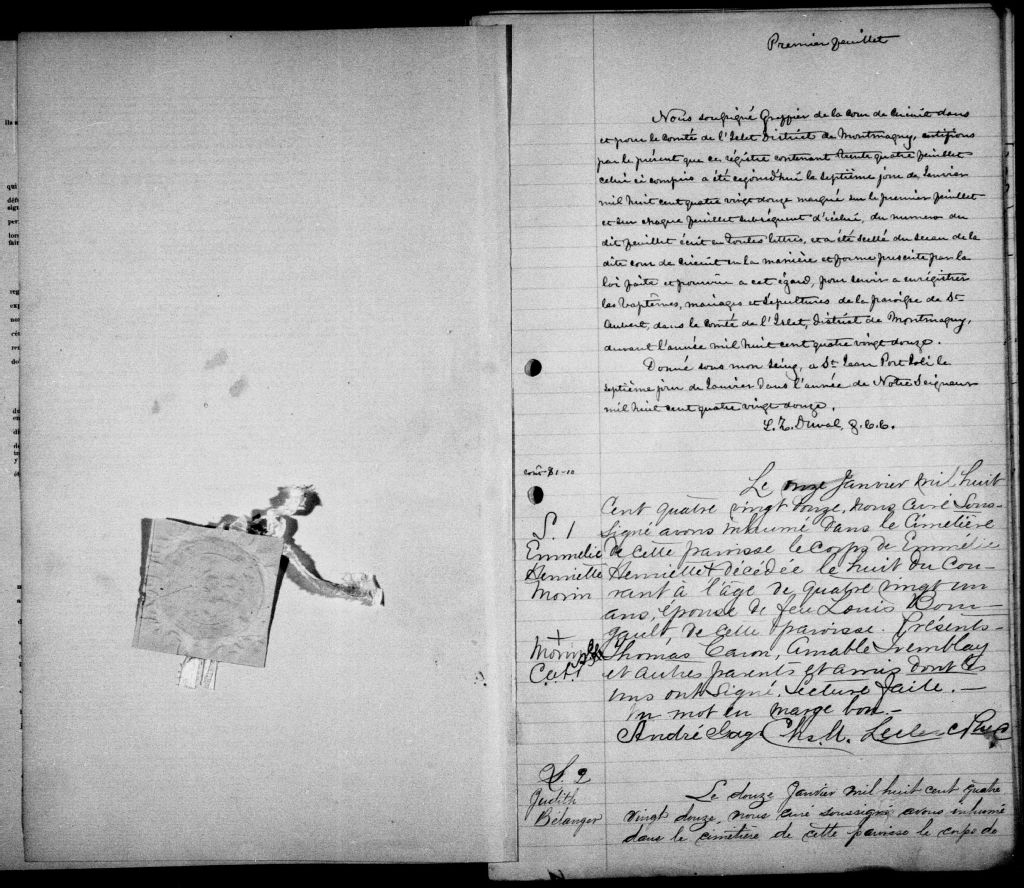 Premier feuillet
Nous soussigné Greffier de la cour de Circuit dans
et pour le comté de l'Islet District de Montmagny, certifions
par le présent que ce régistre contenant trente quatre feuillets
celui ci compris a été cejourd'hui le septième jour de Janvier
mil huit cent quatre vingt douze marqué sur le premier feuillet
et sur chaque feuillet subséquent d'icelui, du numero du
dit feuillet écrit en toutes lettres, et a été scellé du sceau de la
dite cour de circuit en la manière et forme prescrite par la
loi faite et pourvue a cet égard, pour servir a enrégistrer
les baptêmes, mariages et sépultures de la paroisse de St
Aubert, dans le comté de l'Islet, District de Montmagny,
durant l'année mil huit cent quatre vingt douze.
Donné sous mon seing, a St Jean Port Joli le
septième jour de Janvier dans l'année de Notre Seigneur
mil huit cent quatre vingt douze.
L. Z. Duval, G.C.C.
S. 1
Emmelie
Henriette
Morin
Le onze Janvier mil huit
Cent quatre vingt douze, nous curé Sous-
Signé avons inhumé dans le Cimetière
de cette paroisse le corps de Emmélie
Henriette + décédée le huit du Cou-
rant à l'âge de quatre vingt un
ans, épouse de feu Louis Bour-
gault de cette paroisse. Présents
+ Morin
Thomas Caron, Amable Tremblay
et autres parents et amis dont les
uns ont signé. Lecture faite. —
Un mot en marge bon. —
André
S. 2
Judith
Bélanger
Le douze Janvier mil huit cent quatre
vingt douze, nous curé soussigné avons inhumé
dans le cimetière de cette paroisse le corps de